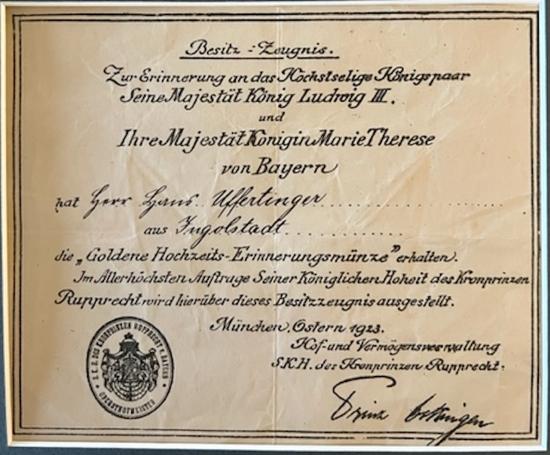 Besitz-Zeugnis.
Zur Erinnerung an das Höchstselige Königspaar
Seine Majestät König Ludwig III.
und
Ihre Majestät Königin Marie Therese
von Bayern
hat Herr Hans Uffertinger
aus Ingolstadt
die „Goldene Hochzeits-Erinnerungsmünze" erhalten.
Im Allerhöchsten Auftrage Seiner Königlichen Hoheit des Kronprinzen
Rupprecht wird hierüber dieses Besitzzeugnis ausgestellt.
München, Ostern 1923.
Hof- und Vermögensverwaltung
S.K.H. des Kronprinzen Rupprecht:
S.K.H. DES KRONPRINZEN RUPPRECHT V. BAYERN
OBERSTHOFMEISTER
Prinz Oettingen